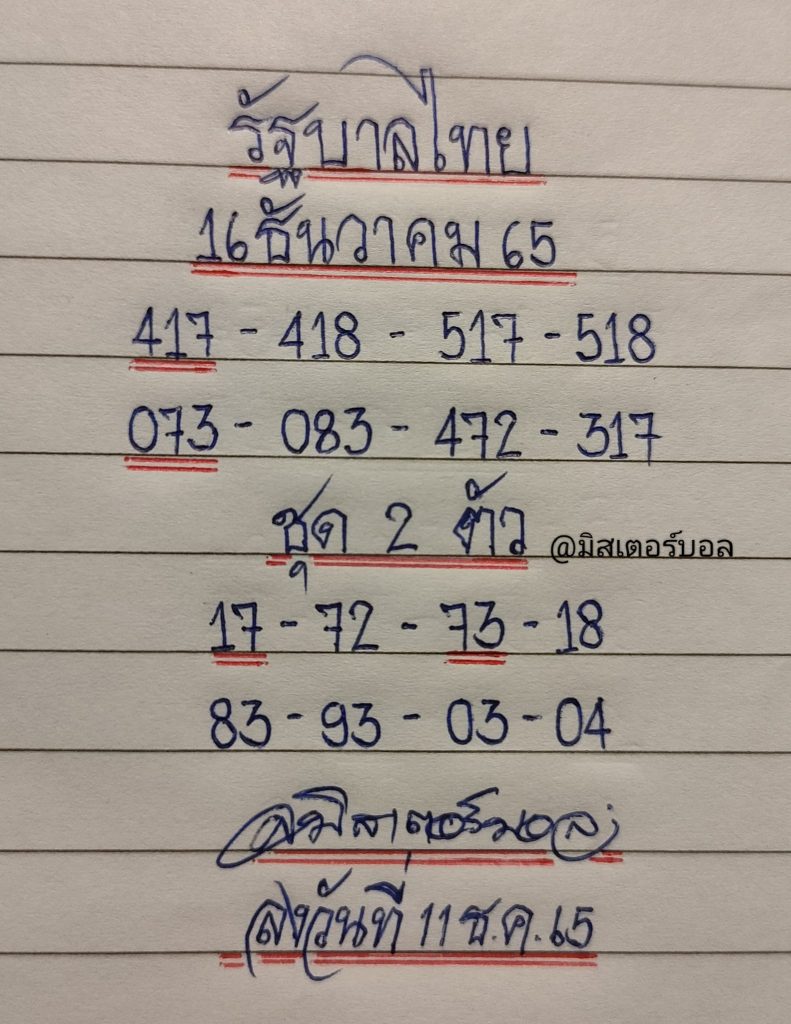 รัฐบาลไทย
16 ธันวาคม 65
417 - 418 - 517 - 518
073 - 083 - 472 - 317
ชุด 2 ตัว @มิสเตอร์บอล
17 - 72 - 73 - 18
83 - 93 - 03 - 04
มิสเตอร์บอล
ลงวันที่ 11 ธ.ค. 65